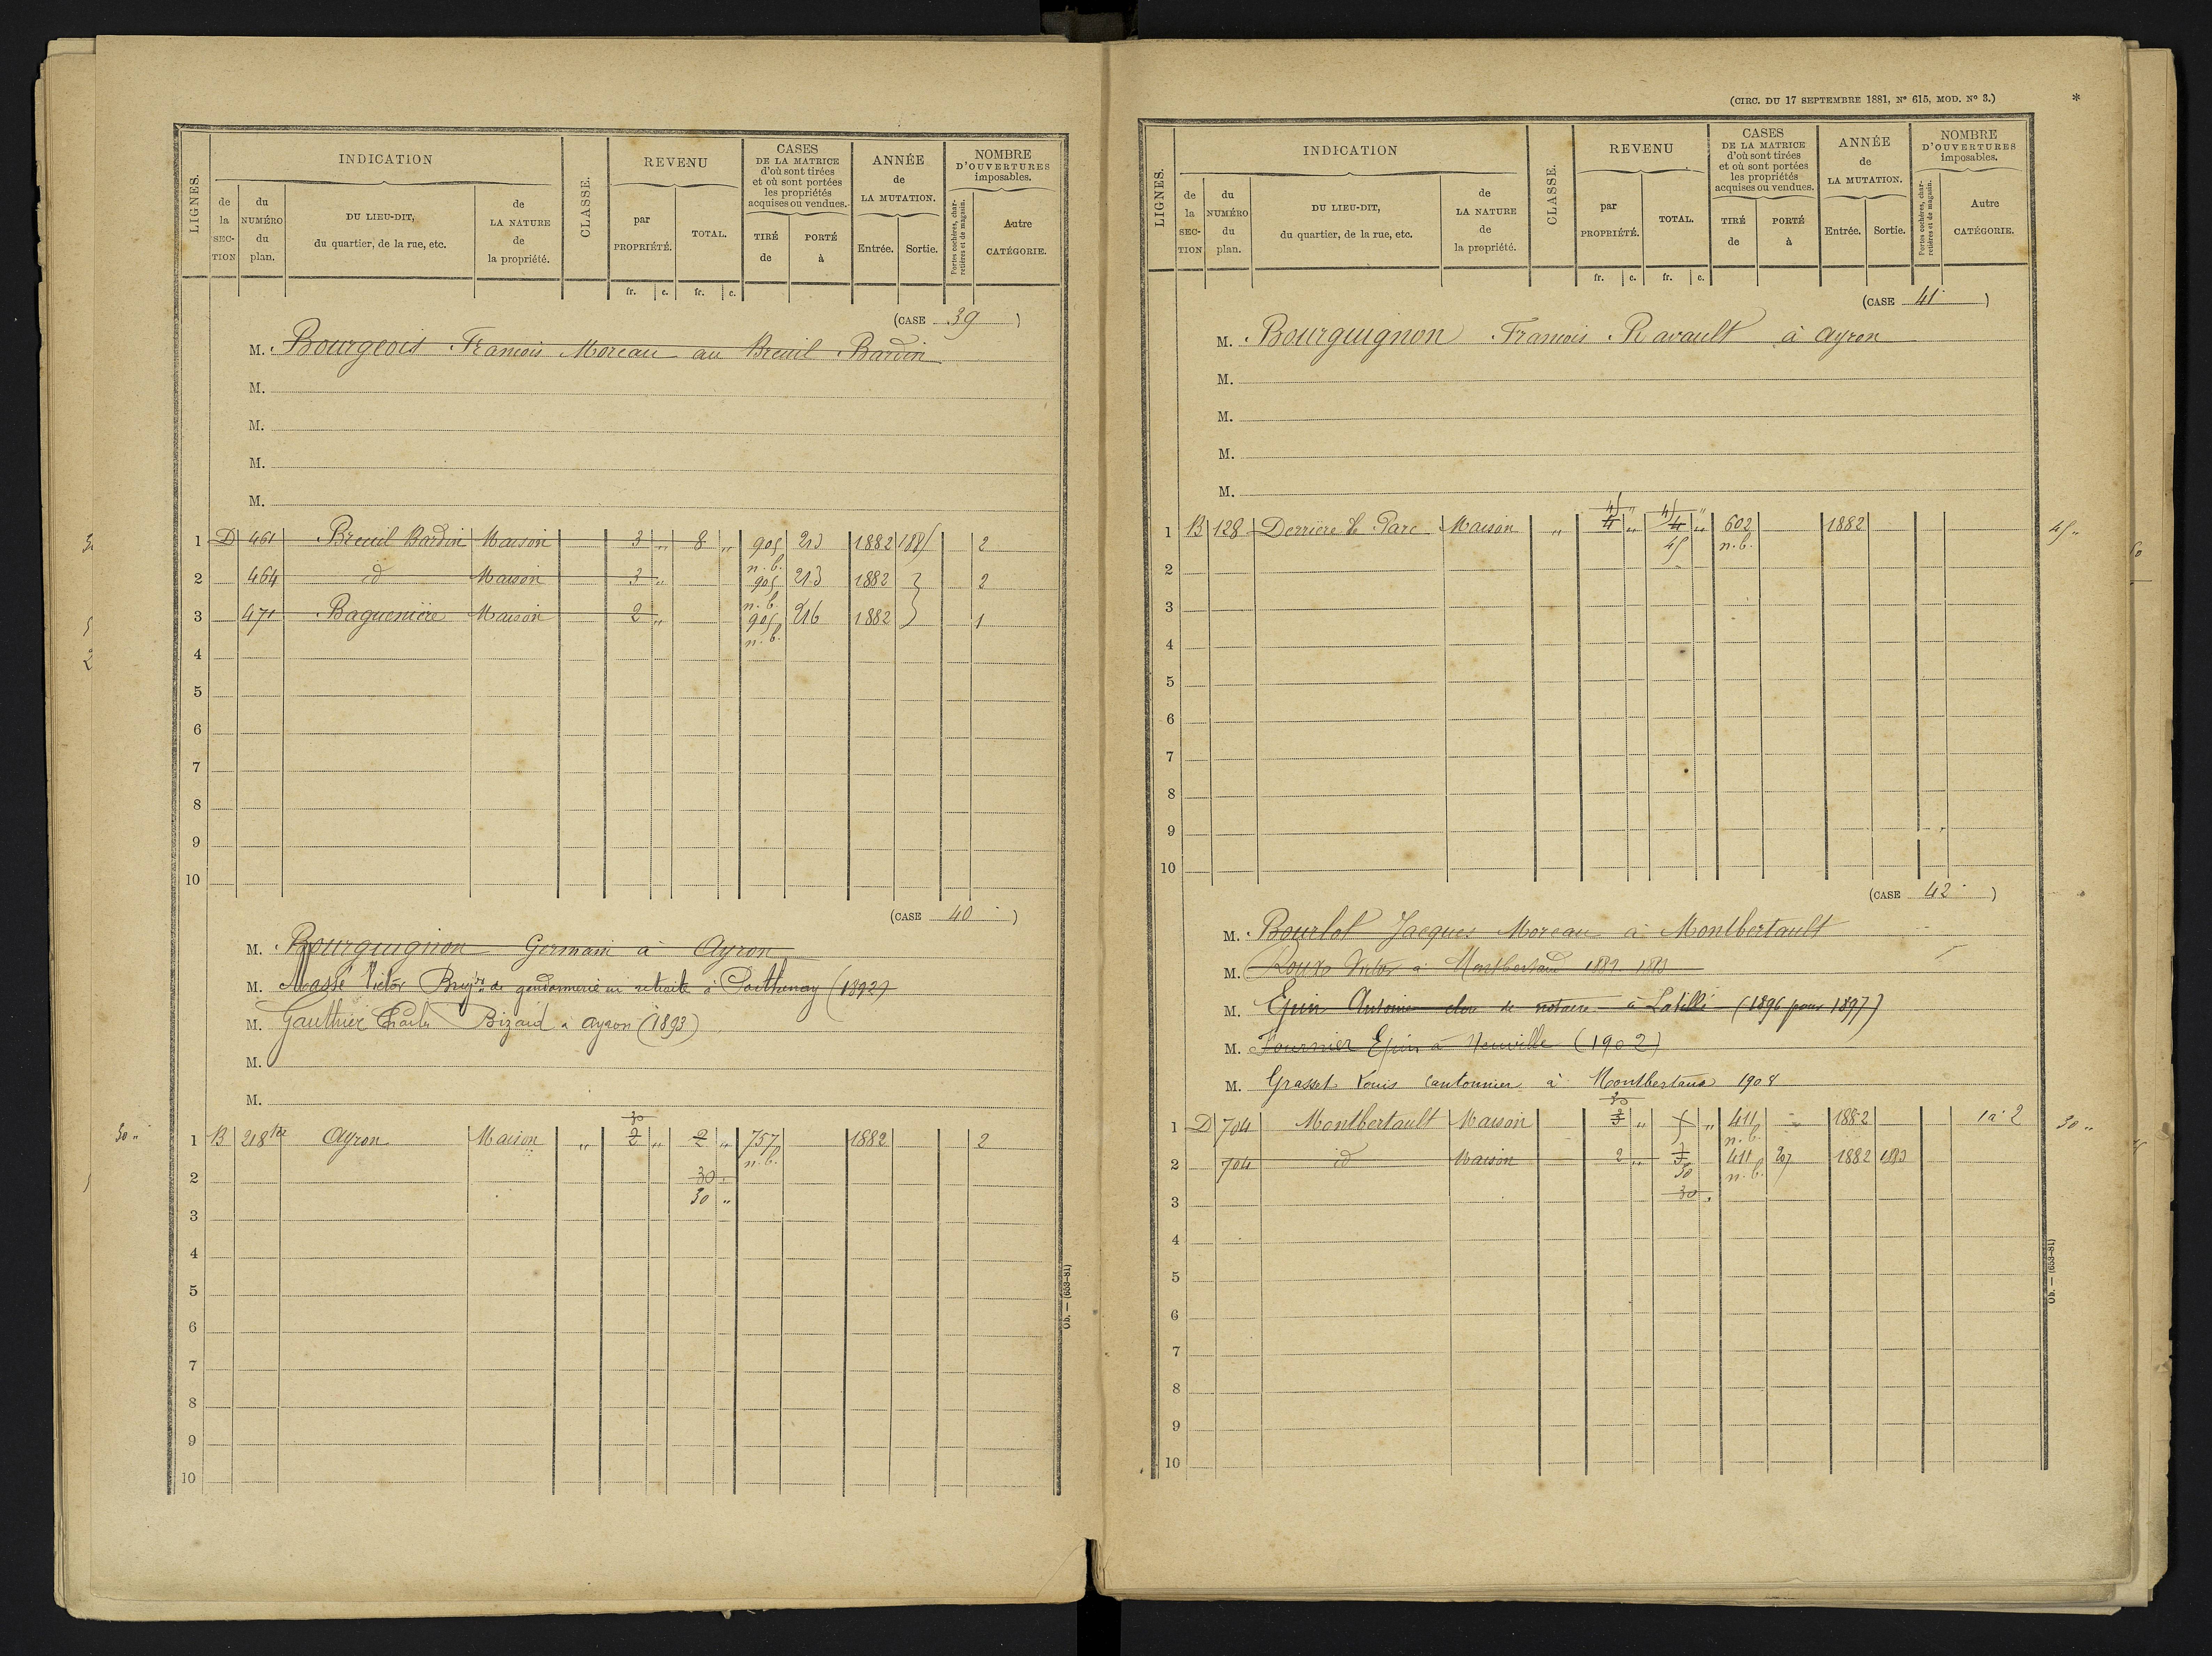 LIGNES.
INDICATION
de la SECTION
du NUMÉRO du plan.
DU LIEU-DIT, du quartier, de la rue, etc.
de LA NATURE de la propriété.
CLASSE.
REVENU
par PROPRIÉTÉ.
TOTAL.
CASES DE LA MATRICE d'où sont tirées et où sont portées les propriétés acquises ou vendues.
TIRÉ de
PORTÉ à
ANNÉE de LA MUTATION.
Entrée.
Sortie.
NOMBRE D'OUVERTURES imposables.
Portes cochères, charretières et de magasin.
Autre CATÉGORIE.
fr. c. fr. c.
(CASE 39)
M. Bourgeois François Moreau au Breuil Bardin
M.
M.
M.
M.
1 D 461 Breuil Bardin Maison 3 „ 8 „ 905 n.b. 213 1882 188 2
2 464 id Maison 3 „ 905 n.b. 213 1882 2
3 471 Baguenière Maison 2 „ 905 n.b. 216 1882 1
4
5
6
7
8
9
10
(CASE 40)
M. Bourguignon Germain à Ayron
M. Massé Victor de gendarmerie en retraite à Parthenay (1892)
M. Gauthier Charles Bizard à Ayron (1893)
M.
M.
30 „
30
1 B 218 ter Ayron Maison „ 2 „ 2 „ 757 n.b. 1882 2
2 30 „
30 „
3
4
5
6
7
8
9
10
Ob. — (653-81)
(CIRC. DU 17 SEPTEMBRE 1881, N° 615, MOD. N° 3.) *
LIGNES.
INDICATION
de la SECTION
du NUMÉRO du plan.
DU LIEU-DIT, du quartier, de la rue, etc.
de LA NATURE de la propriété.
CLASSE.
REVENU
par PROPRIÉTÉ.
TOTAL.
CASES DE LA MATRICE d'où sont tirées et où sont portées les propriétés acquises ou vendues.
TIRÉ de
PORTÉ à
ANNÉE de LA MUTATION.
Entrée.
Sortie.
NOMBRE D'OUVERTURES imposables.
Portes cochères, charretières et de magasin.
Autre CATÉGORIE.
fr. c. fr. c.
(CASE 41)
M. Bourguignon François Ravault à Ayron
M.
M.
M.
M.
45 „ 45 „
1 B 128 Derrière le Parc Maison „ 4 „ 4 „ 602 n.b. 1882 45 „
45
2
3
4
5
6
7
8
9
10
(CASE 42)
M. Bourlot Jacques Moreau à Montbertault
M. Roux Victor à Montbertaud
M. Epin Antoine clerc de notaire à Latillé (1896 pour 1897)
M. Fournier Epin à Neuville (1902)
M. Grasset Louis Cantonnier à Montbertaud 1908
30
1 D 704 Montbertault Maison 3 „ 5 „ 411 n.b. 1882 1 à 2 30 „
2 704 id Maison 2 „ 3 411 n.b. 207 1882 1883
30
3 30 „
4
5
6
7
8
9
10
Ob. — (653-81)